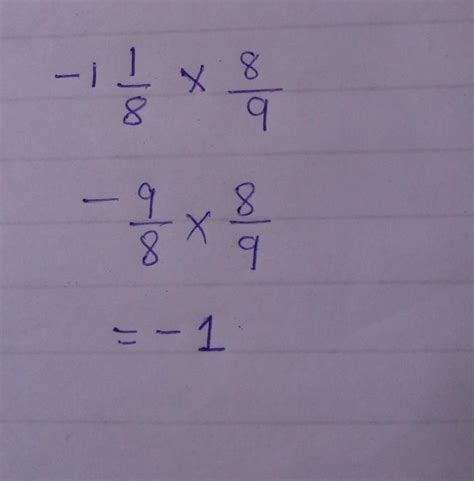 -1 1/8 × 8/9
-9/8 × 8/9
= -1